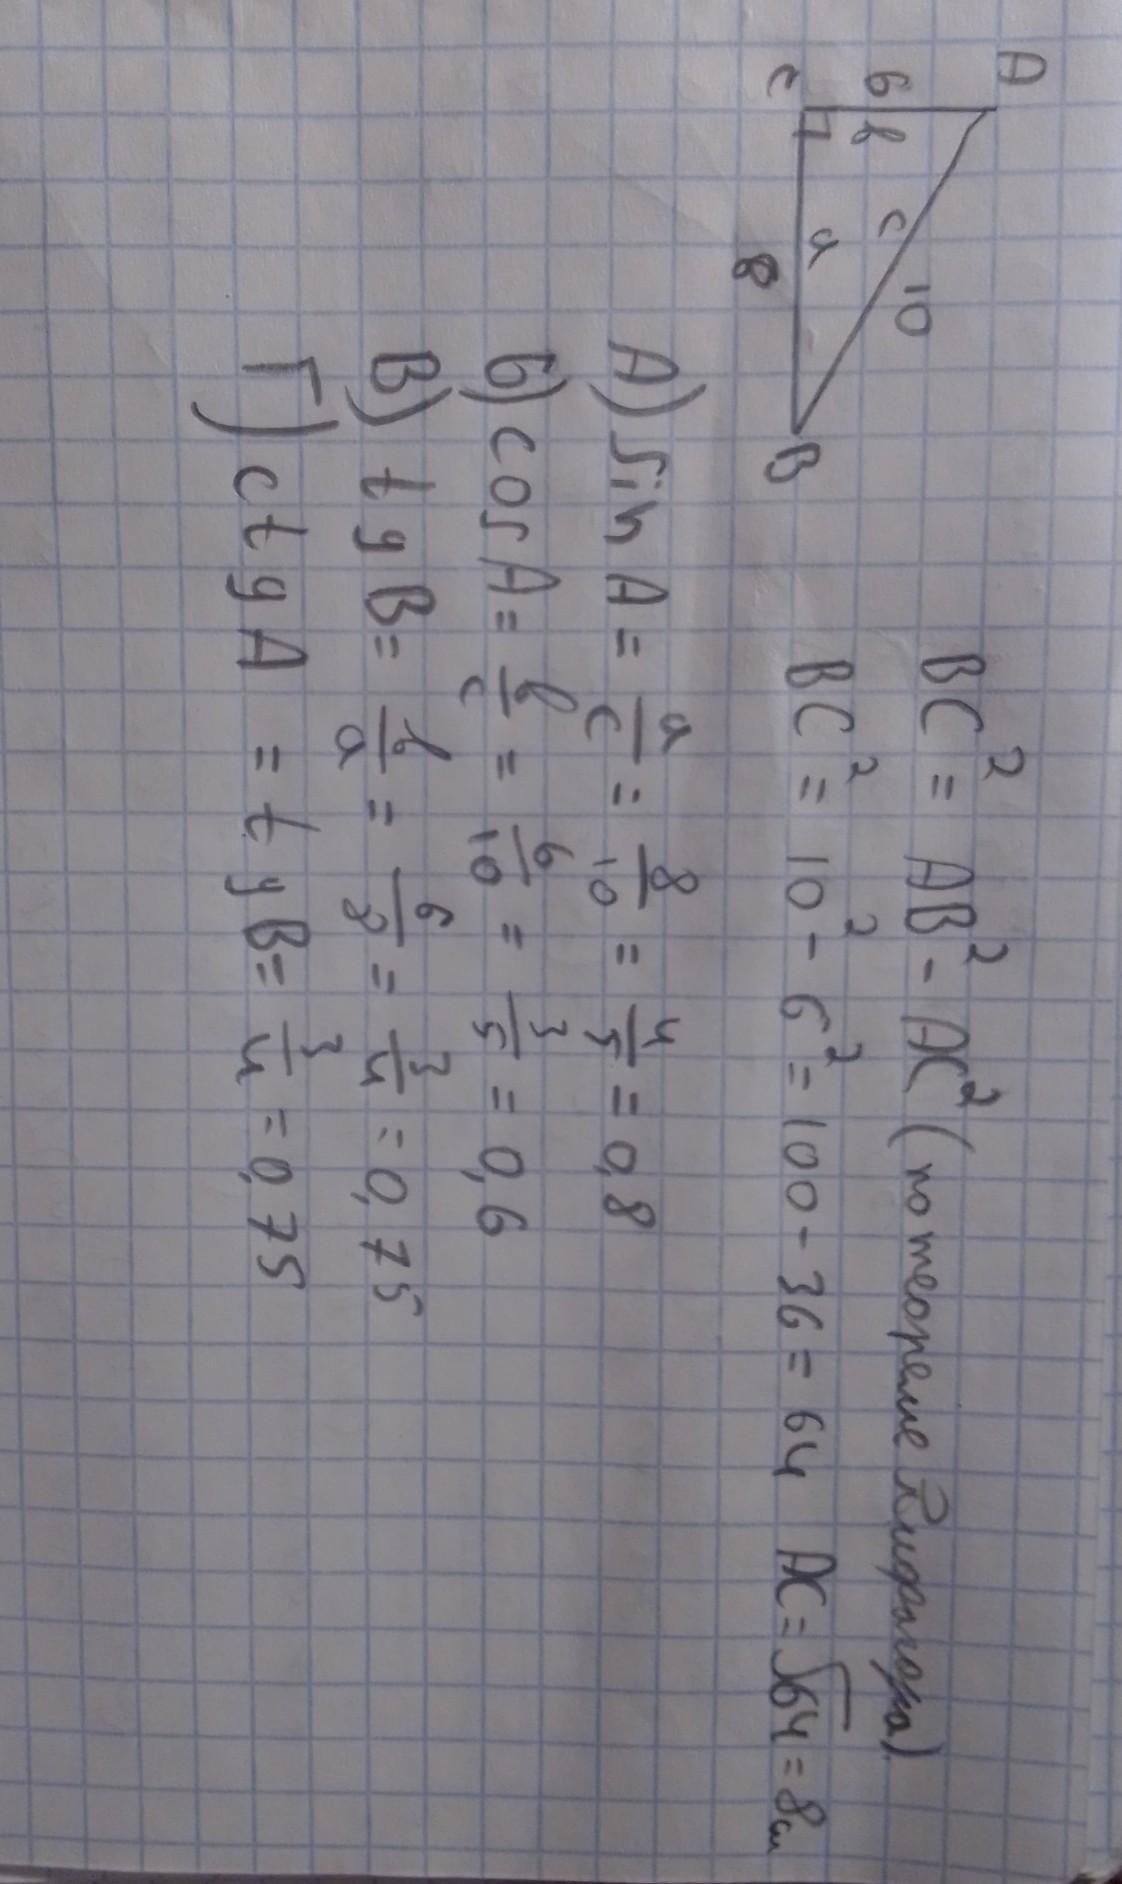 A
6 в
c 10
a
C B
8
BC² = AB² - AC² (по теореме Пифагора)
BC² = 10² - 6² = 100 - 36 = 64 AC = √64 = 8см
А) sin A = a/c = 8/10 = 4/5 = 0,8
Б) cos A = в/c = 6/10 = 3/5 = 0,6
В) tg B = в/a = 6/8 = 3/4 = 0,75
Г) ctg A = tg B = 3/4 = 0,75